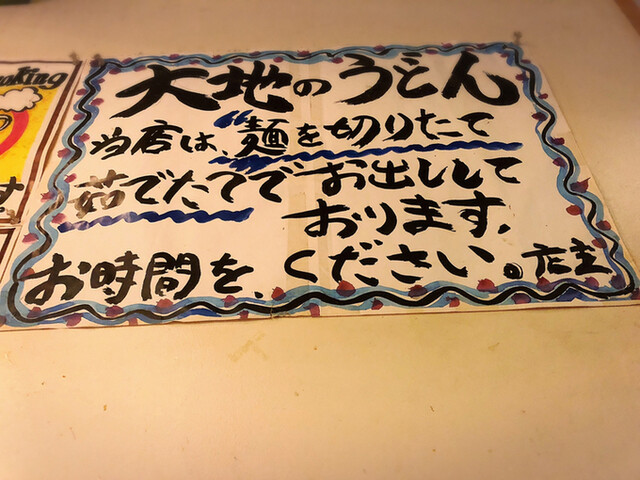 大地のうどん
当店は、“麺を切りたて
茹でたてでお出しして
おります。
お時間を、ください。店主
oking